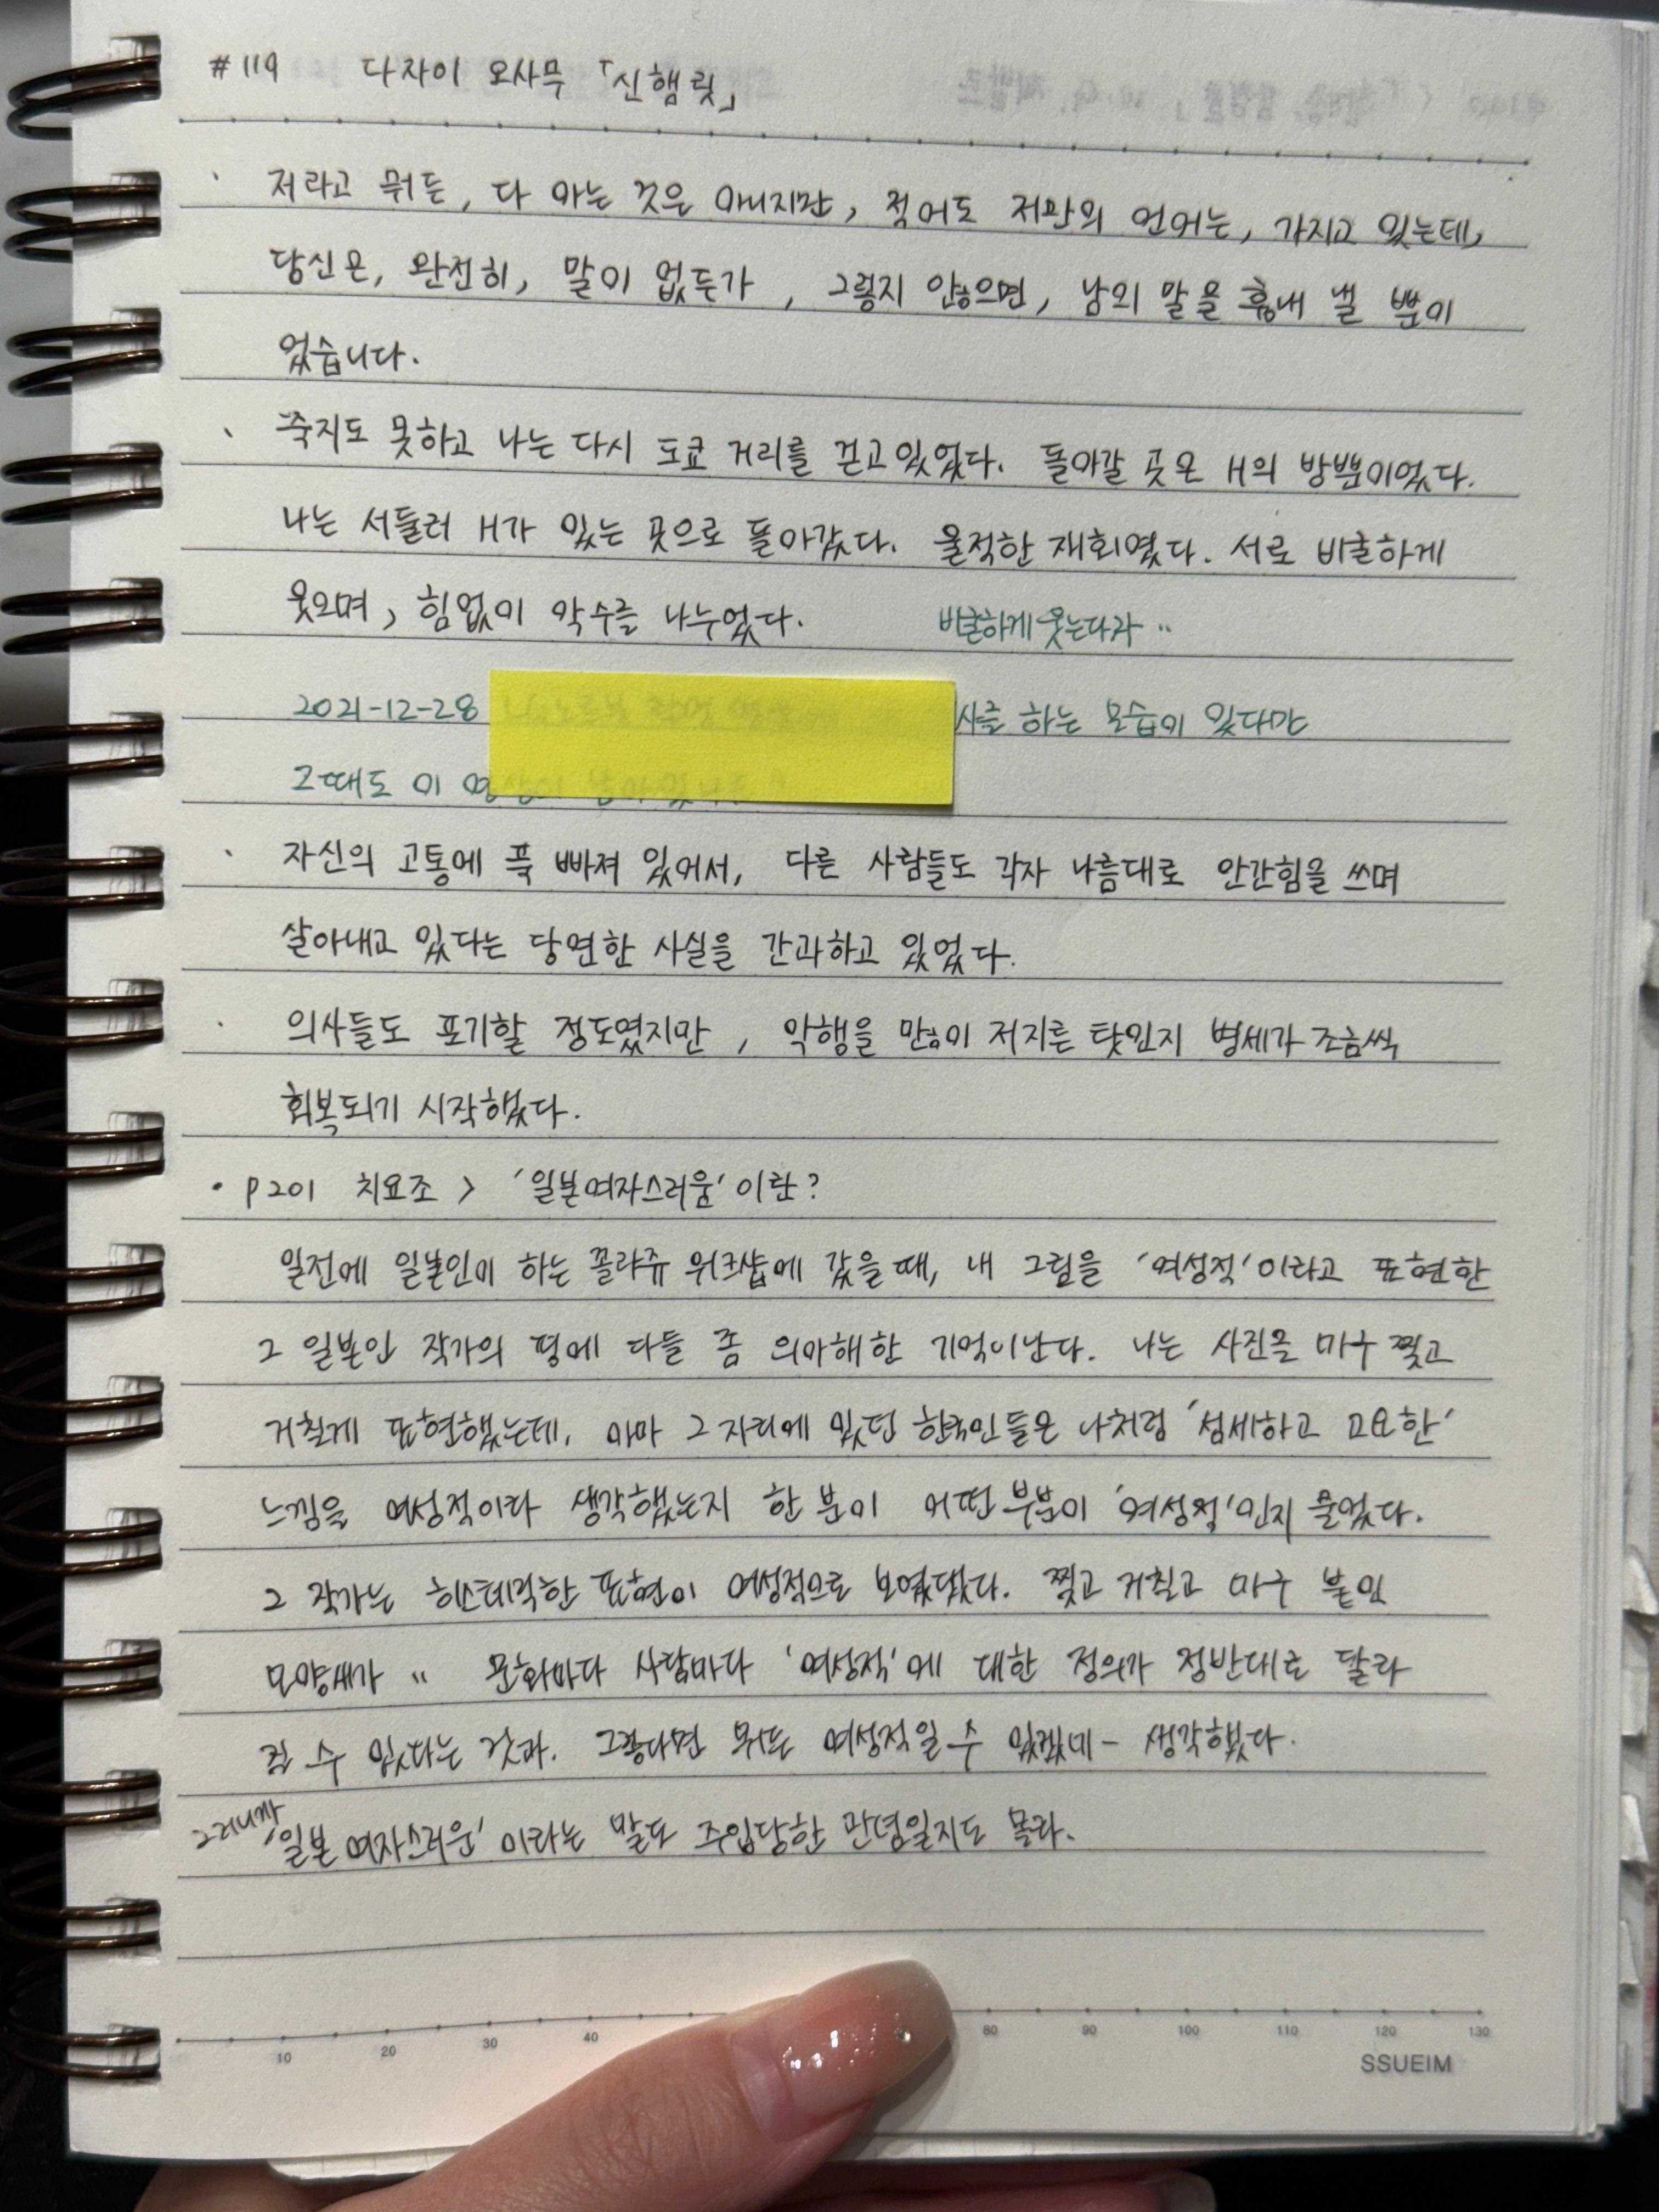 #119 다자이 오사무 「신햄릿」
· 저라고 뭐든, 다 아는 것은 아니지만, 적어도 저만의 언어는, 가지고 있는데,
당신은, 완전히, 말이 없든가, 그렇지 않으면, 남의 말을 흉내 낼 뿐이
었습니다.
· 죽지도 못하고 나는 다시 도쿄 거리를 걷고있었다. 돌아갈 곳은 H의 방뿐이었다.
나는 서둘러 H가 있는 곳으로 돌아갔다. 울적한 재회였다. 서로 비굴하게
웃으며, 힘없이 악수를 나누었다. 비굴하게 웃는다라 ..
2021-12-28 사를 하는 모습이 있다만
그때도 이
· 자신의 고통에 푹 빠져 있어서, 다른 사람들도 각자 나름대로 안간힘을 쓰며
살아내고 있다는 당연한 사실을 간과하고 있었다.
· 의사들도 포기할 정도였지만, 악행을 많이 저지른 탓인지 병세가 조금씩
회복되기 시작했다.
· p201 치요조 > '일본여자스러움'이란?
일전에 일본인이 하는 꼴라쥬 워크샵에 갔을 때, 내 그림을 '여성적'이라고 표현한
그 일본인 작가의 평에 다들 좀 의아해한 기억이난다. 나는 사진을 마구 찢고
거칠게 표현했는데, 아마 그 자리에 있던 한국인들은 나처럼 '섬세하고 고요한'
느낌을 여성적이라 생각했는지 한 분이 어떤 부분이 '여성적'인지 물었다.
그 작가는 히스테릭한 표현이 여성적으로 보였댔다. 찢고 거칠고 마구 붙인
모양새가 .. 문화마다 사람마다 '여성적'에 대한 정의가 정반대로 달라
질 수 있다는 것과. 그렇다면 뭐든 여성적일 수 있겠네- 생각했다.
그러니까 '일본여자스러운' 이라는 말도 주입당한 관념일지도 몰라.
10 20 30 40 80 90 100 110 120 130
SSUEIM